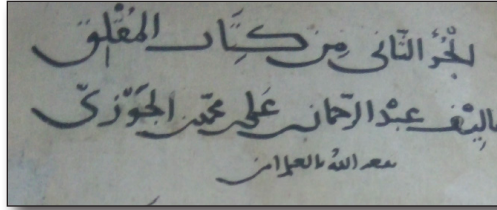 الجُزءُ الثّانى مِن كِتَاب المُقْلِق
تالِيْف عبْد الرّحمان عَلى محمّد الجَوْزىّ
نفع الله بالعلم امين